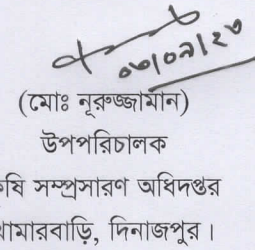 ০৩/০৭/২৩
(মোঃ নূরুজ্জামান)
উপপরিচালক
কৃষি সম্প্রসারণ অধিদপ্তর
খামারবাড়ি, দিনাজপুর।